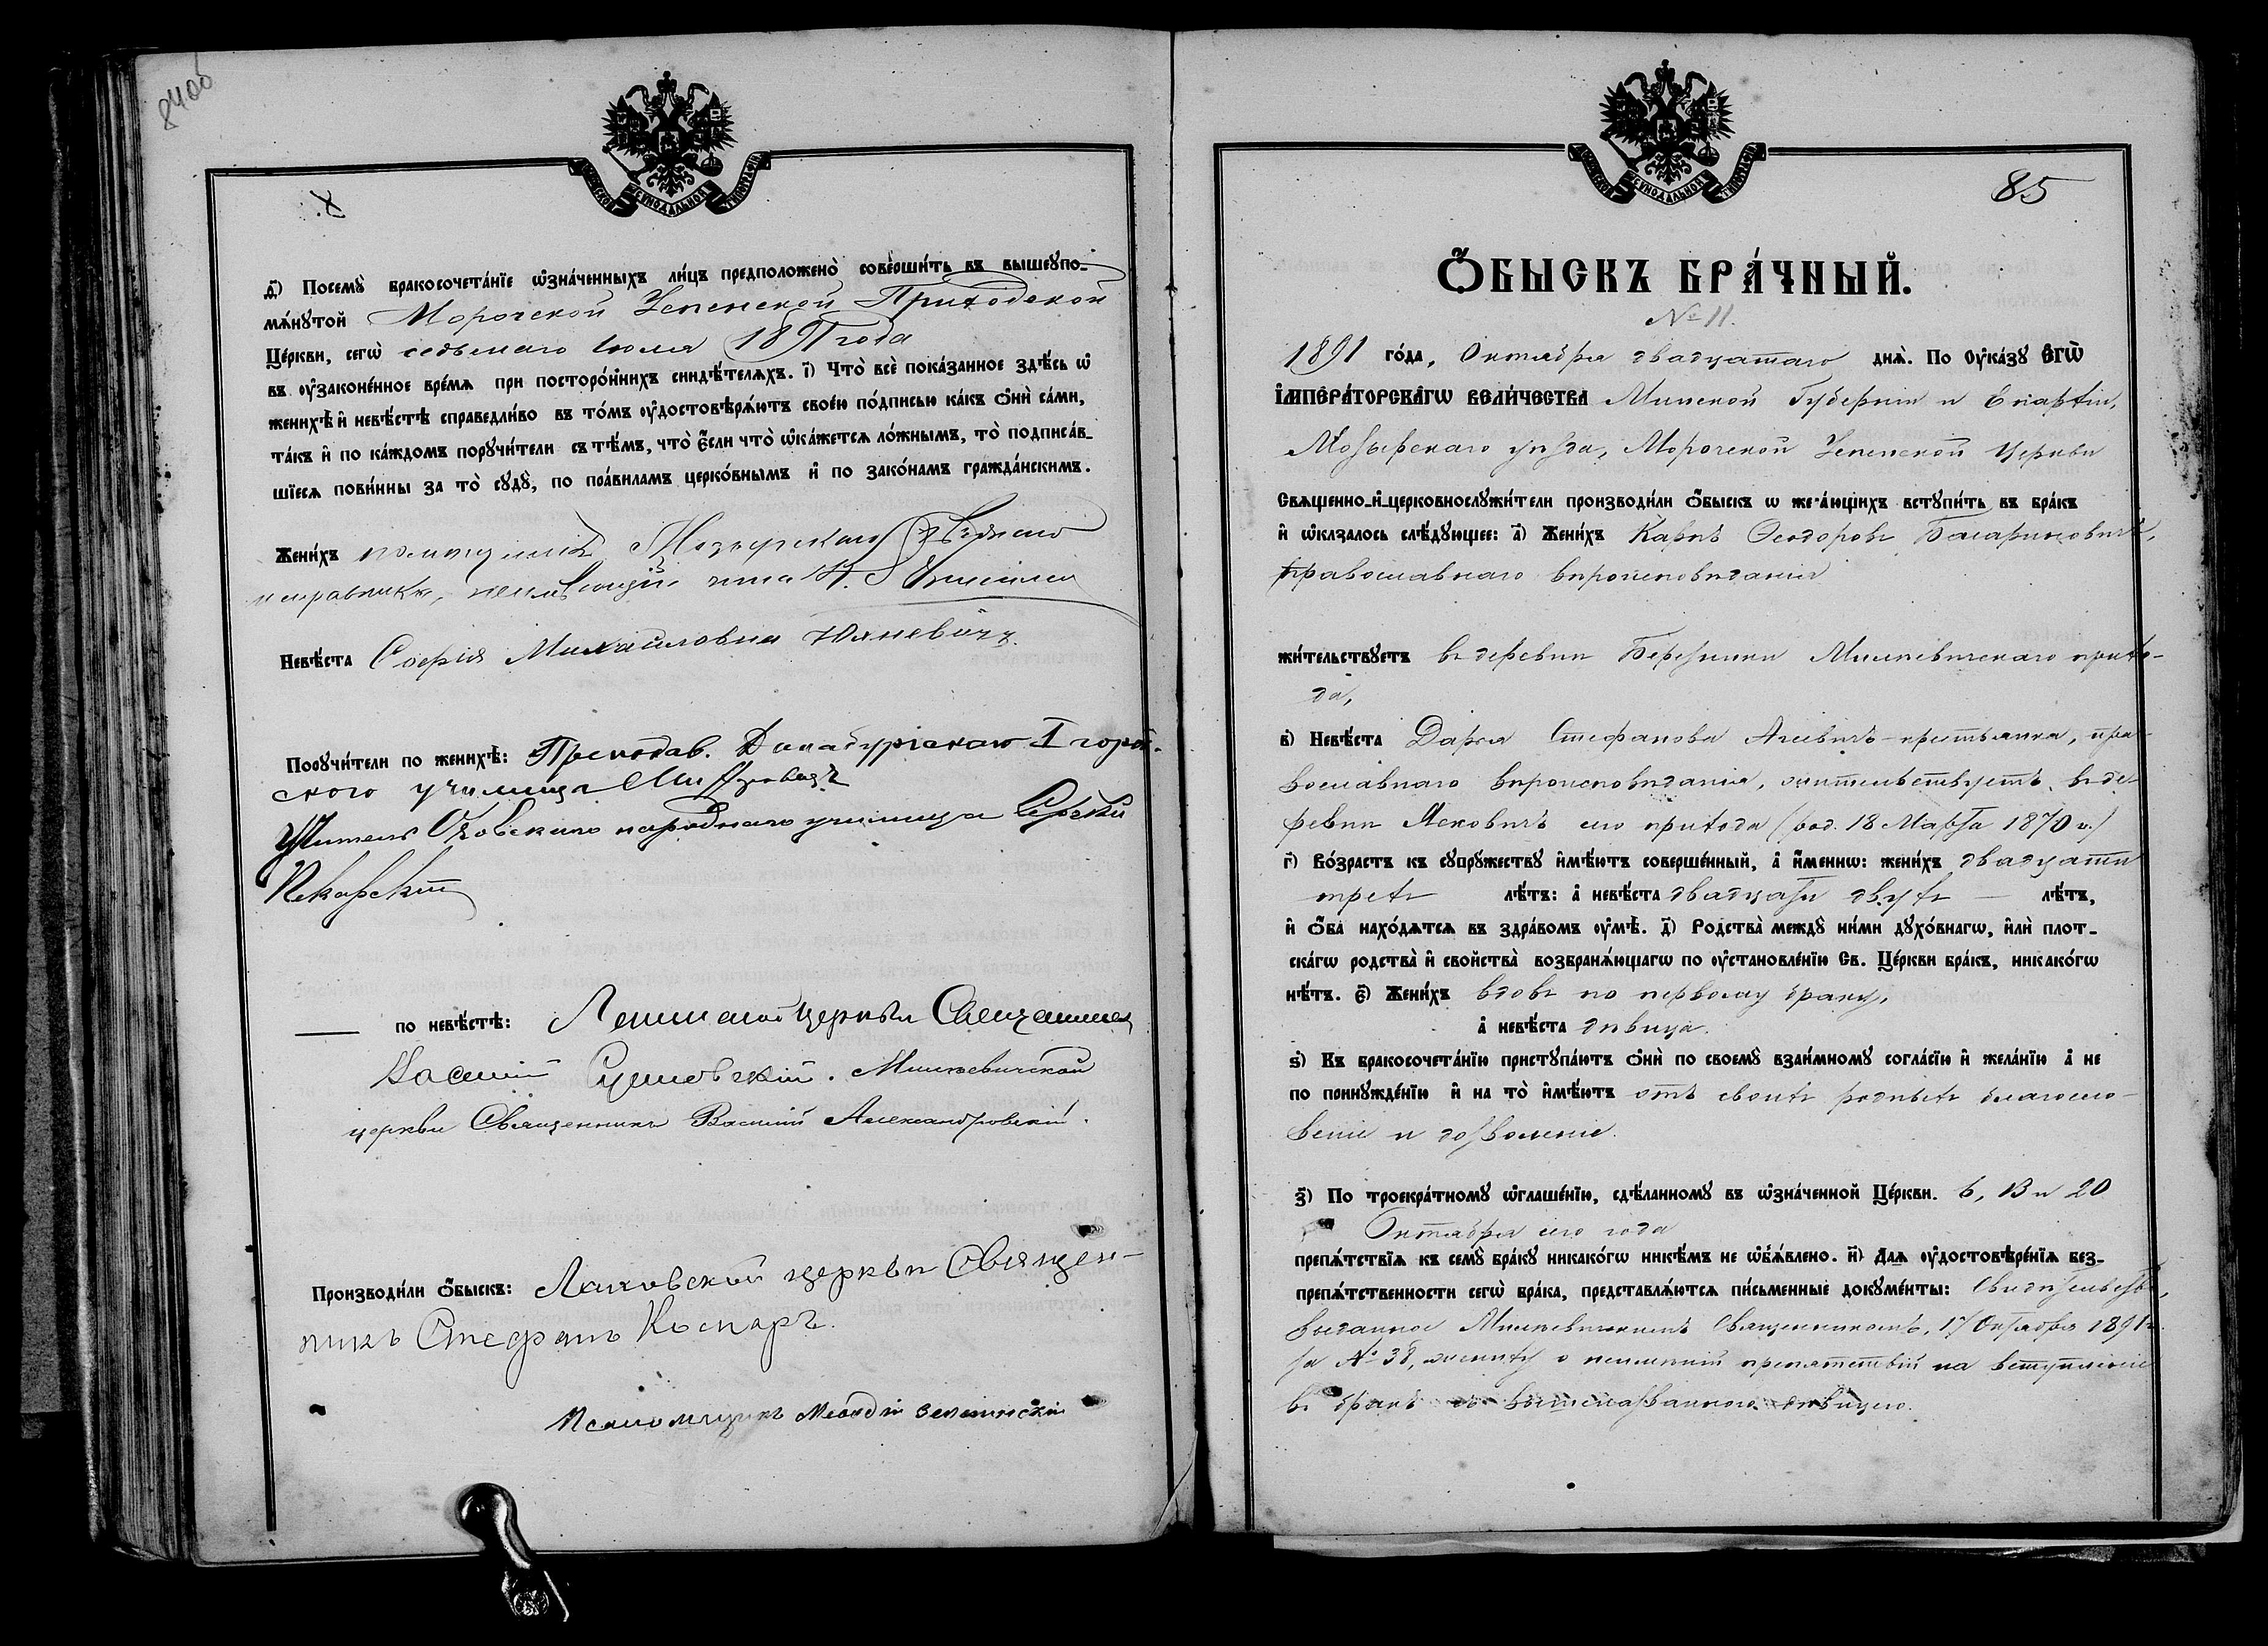 84 об
МОСКОВСКОЙ СѴНОДАЛЬНОЙ ТИПОГРАФІИ
д҃і) Посемꙋ̀ бракосочета́нїе ѡ҆зна́ченныхъ ли́цъ предположено̀ соверши́ть въ вышеꙋпо-
мѧ́нꙋтой Морочской Успенской Приходской
Це́ркви, сегѡ̀ седьмаго Іюля 1891 года
въ ᲂу҆законе́нное вре́мѧ при посторо́ннихъ свидѣ́телѧхъ. і҃) Что̀ всѐ пока́занное здѣ́сь ѡ҆
женихѣ̀ и҆ невѣ́стѣ справедли́во въ то́мъ ᲂу҆достовѣрѧ́ютъ своє́ю по́дписью ка́къ ѻ҆нѝ са́ми,
та́къ и҆ по ка́ждомъ порꙋчи́тели съ тѣ́мъ, что̀ є҆́сли что̀ ѡ҆ка́жетсѧ ло́жнымъ, то̀ подписа́в-
шїесѧ пови́нны за то̀ сꙋдꙋ̀, по пра́виламъ церко́внымъ и҆ по зако́намъ гражда́нскимъ.
Жени́хъ помощникъ Мозырскаго Уѣзднаго
исправника, неимѣющій чина
Невѣ́ста Софія Михайловна
Порꙋчи́тели по женихѣ̀: Преподав. Динабургскаго I город-
ского училища
Учитель народнаго училища Сергѣй
Пекарскій
по невѣ́стѣ: церкви Священникъ
Василій . Милевичской
церкви Священникъ Василій Александровскій.
Производи́ли ѻ҆́быскъ: Ляховской церкви Священ-
никъ Стефанъ
Псаломщикъ Меѳодій
МОСКОВСКОЙ СѴНОДАЛЬНОЙ ТИПОГРАФІИ
85
Ѻ҆́БЫСКЪ БРА́ЧНЫЙ.
№ 11.
1891 го́да, Октября двадцатаго днѧ̀. По ᲂу҆ка́зꙋ Є҆ГѠ̀
І҆МПЕРА́ТОРСКАГѠ ВЕЛИ́ЧЕСТВА Минской Губерніи и Епархіи,
Мозырскаго уѣзда, Морочской Успенской церкви
Свѧщенно-и҆-церковнослꙋжи́тели производи́ли ѻ҆́быскъ ѡ жела́ющихъ встꙋпи́ть въ бра́къ
и҆ ѡ҆казалось слѣ́дꙋющее: а҃) Жени́хъ Карпъ Ѳеодоровъ
православнаго вѣроисповѣданія
жи́тельствꙋетъ въ деревни Березники Милевичскаго прихо-
да,
в҃) Невѣ́ста Дарья Стефанова – крестьянка, пра-
вославнаго вѣроисповѣданія, жительствуетъ въ де-
ревни Ясковичъ сего прихода (род. 18 Марта 1870 г.)
г҃) Во́зрастъ къ сꙋпрꙋ́жествꙋ и҆мѣ́ютъ соверше́нный, а҆ и҆́меннѡ: жени́хъ двадцати
трехъ лѣ́тъ: а҆ невѣ́ста двадцати двухъ — лѣ́тъ,
и҆ ѻ҆́ба нахо́дѧтсѧ въ здра́вомъ ᲂу҆мѣ̀. д҃) Родства̀ междꙋ̀ ни́ми дꙋхо́внагѡ, и҆лѝ плот-
ска́гѡ родства̀ и҆ сво́йства возбранѧ́ющагѡ по ᲂу҆становле́нїю Св. Це́ркви бра́къ, никако́гѡ
нѣ́тъ. є҃) Жени́хъ вдовъ по первому браку,
а҆ невѣ́ста дѣвица.
ѕ҃) Къ бракосочета́нїю пристꙋпа́ютъ ѻ҆нѝ по своемꙋ̀ взаи́мномꙋ согла́сїю и҆ жела́нїю а҆ не
по принꙋжде́нїю и҆ на то̀ и҆мѣ́ютъ отъ своихъ родныхъ благосло-
веніе и дозволеніе.
з҃) По троекра́тномꙋ ѡ҆глаше́нїю, сдѣ́ланномꙋ въ ѡ҆зна́ченной Це́ркви. 6, 13 и 20
Октября сего года
препѧ́тствїѧ къ семꙋ̀ бра́кꙋ никако́гѡ никѣ́мъ не ѡ҆б̾ѧ́влено. и҃) Длѧ ᲂу҆достовѣре́нїѧ без-
препѧ́тственности сегѡ̀ бра́ка, представлѧ́ютсѧ пи́сьменные докꙋме́нты: Свидѣтельство,
выданное Милевичскимъ Священникомъ, 17 Октября 1891 г.
за № 38, жениху о неимѣніи препятствій на вступленіе
въ бракъ съ вышеназванною дѣвицею.